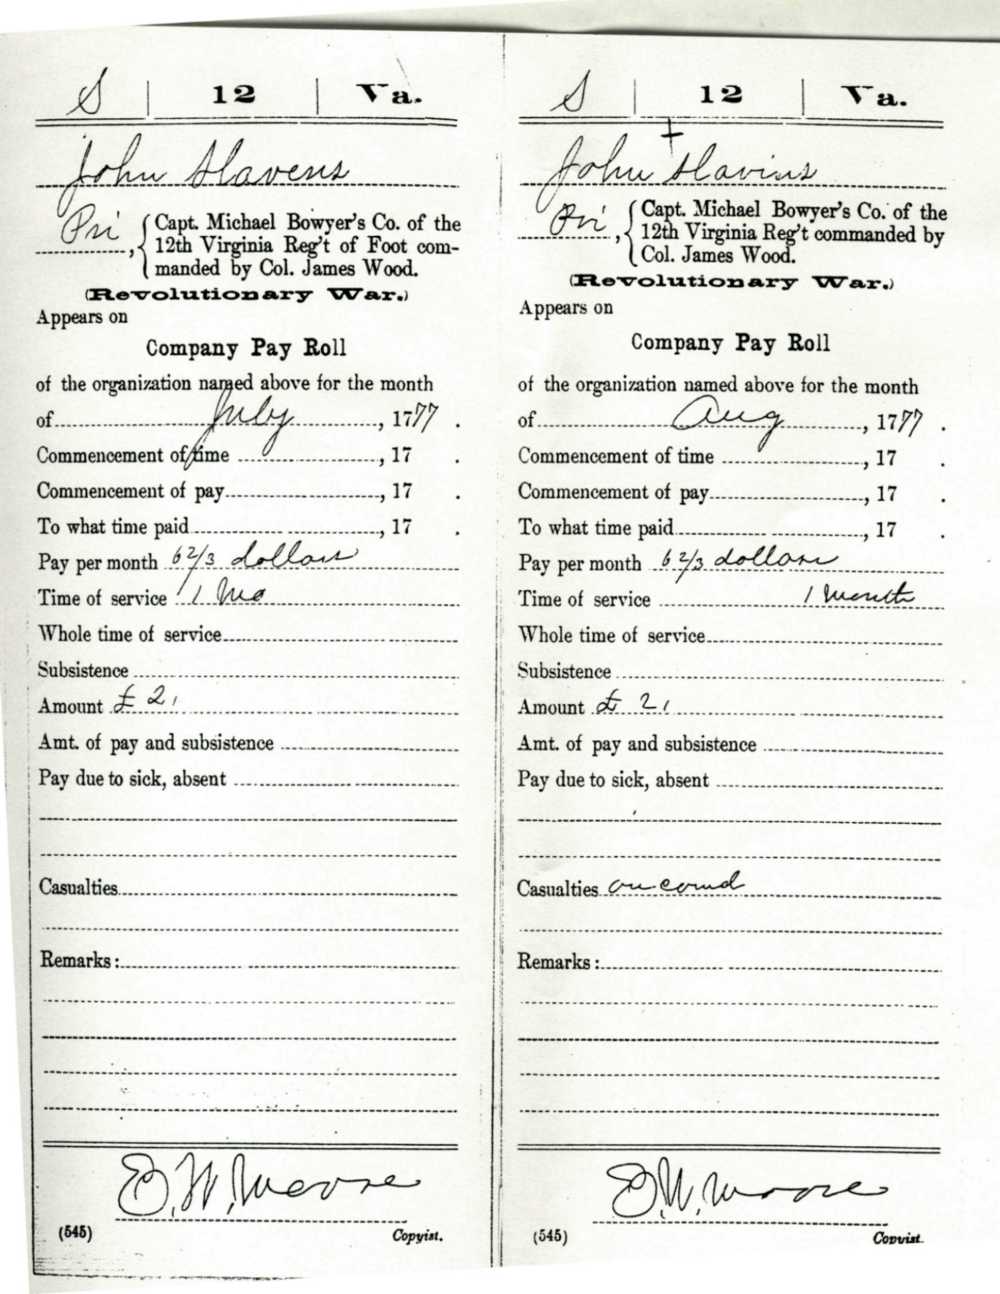 S | 12 | Va.
John Slavens
Pri , Capt. Michael Bowyer's Co. of the
12th Virginia Reg't of Foot com-
manded by Col. James Wood.
(Revolutionary War.)
Appears on
Company Pay Roll
of the organization named above for the month
of July, 1777.
Commencement of time , 17 .
Commencement of pay , 17 .
To what time paid , 17 .
Pay per month 6 2/3 dollars
Time of service 1 Mo
Whole time of service
Subsistence
Amount £ 2,
Amt. of pay and subsistence
Pay due to sick, absent
Casualties
Remarks:
E. W. Moore
(545) Copyist.
S | 12 | Va.
John Slavins
Pri , Capt. Michael Bowyer's Co. of the
12th Virginia Reg't commanded by
Col. James Wood.
(Revolutionary War.)
Appears on
Company Pay Roll
of the organization named above for the month
of Aug, 1777.
Commencement of time , 17 .
Commencement of pay , 17 .
To what time paid , 17 .
Pay per month 6 2/3 dollars
Time of service 1 month
Whole time of service
Subsistence
Amount £ 2,
Amt. of pay and subsistence
Pay due to sick, absent
Casualties on comd
Remarks:
E. W. Moore
(545) Copyist.